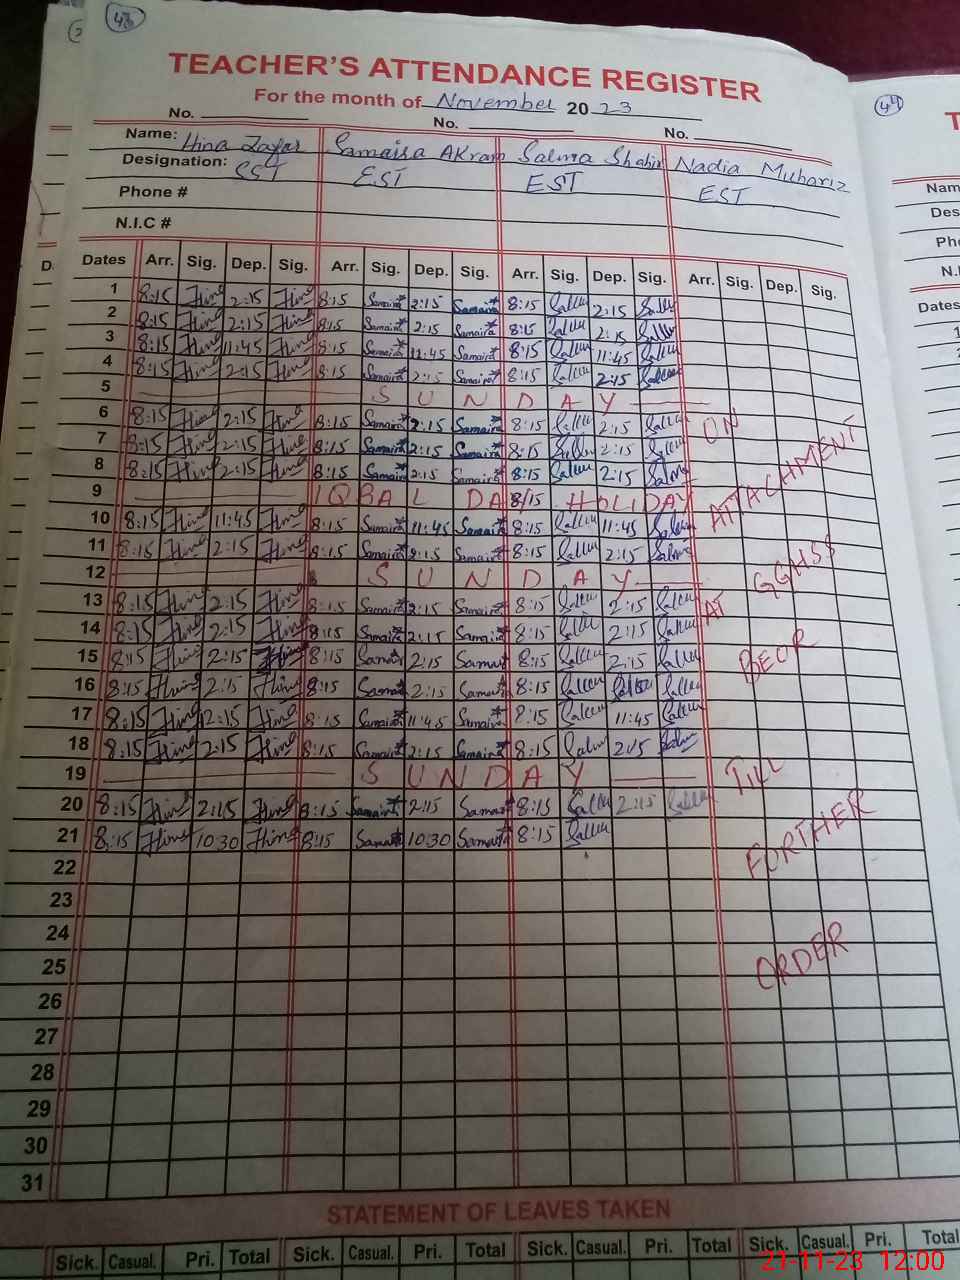 48
TEACHER'S ATTENDANCE REGISTER
For the month of November 2023
No. No. No.
Name: Hina Zafar Samaira Akram Salma Shahin Nadia Muhariz
Designation: SST EST EST EST
Phone #
N.I.C #
Dates Arr. Sig. Dep. Sig. Arr. Sig. Dep. Sig. Arr. Sig. Dep. Sig. Arr. Sig. Dep. Sig.
1 8:15 Hina 2:15 Hina 8:15 Samaira 2:15 Samaira 8:15 2:15
2 8:15 Hina 2:15 Hina 8:15 Samaira 2:15 Samaira 8:15 2:15
3 8:15 Hina 11:45 Hina 8:15 Samaira 11:45 Samaira 8:15 11:45
4 8:15 Hina 2:15 Hina 8:15 Samaira 2:15 Samaira 8:15 2:15
5 SUNDAY
6 8:15 Hina 2:15 Hina 8:15 Samaira 2:15 Samaira 8:15 2:15
7 8:15 Hina 2:15 Hina 8:15 Samaira 2:15 Samaira 8:15 2:15
8 8:15 Hina 2:15 Hina 8:15 Samaira 2:15 Samaira 8:15 2:15 Salma
9 IQBAL DA 8/15 HOLIDAY
10 8:15 Hina 11:45 Hina 8:15 Samaira 11:45 Samaira 8:15 11:45
11 8:15 Hina 2:15 Hina 8:15 Samaira 2:15 Samaira 8:15 2:15 Salma
12 SUNDAY
13 8:15 Hina 2:15 Hina 8:15 Samaira 2:15 Samaira 8:15 2:15
14 8:15 Hina 2:15 Hina 8:15 Samaira 2:15 Samaira 8:15 2:15
15 8:15 Hina 2:15 Hina 8:15 2:15 8:15 2:15
16 8:15 Hina 2:15 Hina 8:15 2:15 8:15
17 8:15 Hina 2:15 Hina 8:15 Samaira 11:45 Samaira 8:15 11:45
18 8:15 Hina 2:15 Hina 8:15 Samaira 2:15 Samaira 8:15 Salma 2:15 Salma
19 SUNDAY
20 8:15 Hina 2:15 Hina 8:15 Samaira 2:15 8:15 2:15
21 8:15 Hina 10:30 Hina 8:15 10:30 8:15
22
23
24
25
26
27
28
29
30
31
ON
ATTACHMENT
AT GGHSS
BEOR
TILL
FURTHER
ORDER
STATEMENT OF LEAVES TAKEN
Sick. Casual. Pri. Total Sick. Casual. Pri. Total Sick. Casual. Pri. Total Sick. Casual. Pri. Total
49
T
Nam
Des
Ph
N.I
Dates
21-11-23 12:00